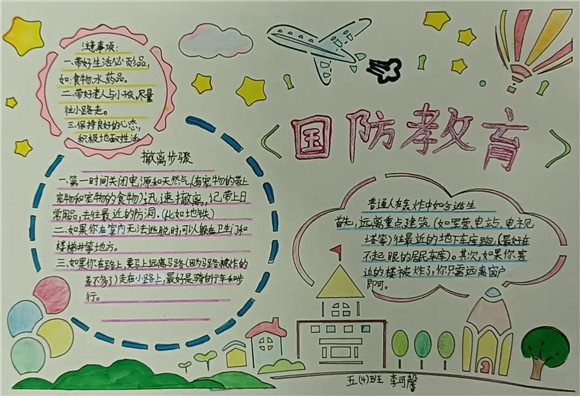 注意事项:
一.带好生活必需品,
如:食物.水.药品。
二.带好老人与小孩,尽量
往小路走。
三.保持良好的心态,
积极地面对生活
国防教育
撤离步骤
一.第一时间关闭电源和天然气,(有宠物的带上
宠物和宠物的食物)迅速撤离,记带上日
常用品,去往最近的防洞。(比如地铁)
二.如果你在室内无法逃脱时,可以躲在卫生间和
楼梯井等地方。
三.如果你在路上,要马上远离马路(因为马路被炸的
差不多了)走在小路上,最好是骑自行车和步
行。
普通人在轰炸中如何逃生
首先,远离重点建筑(如军营、电站、电视
塔等)往最近的地下车库跑,(最好在
不起眼的居民车库)。其次,如果你
的楼被炸了,你只需远离窗户
即可。
五(4)班 李可馨